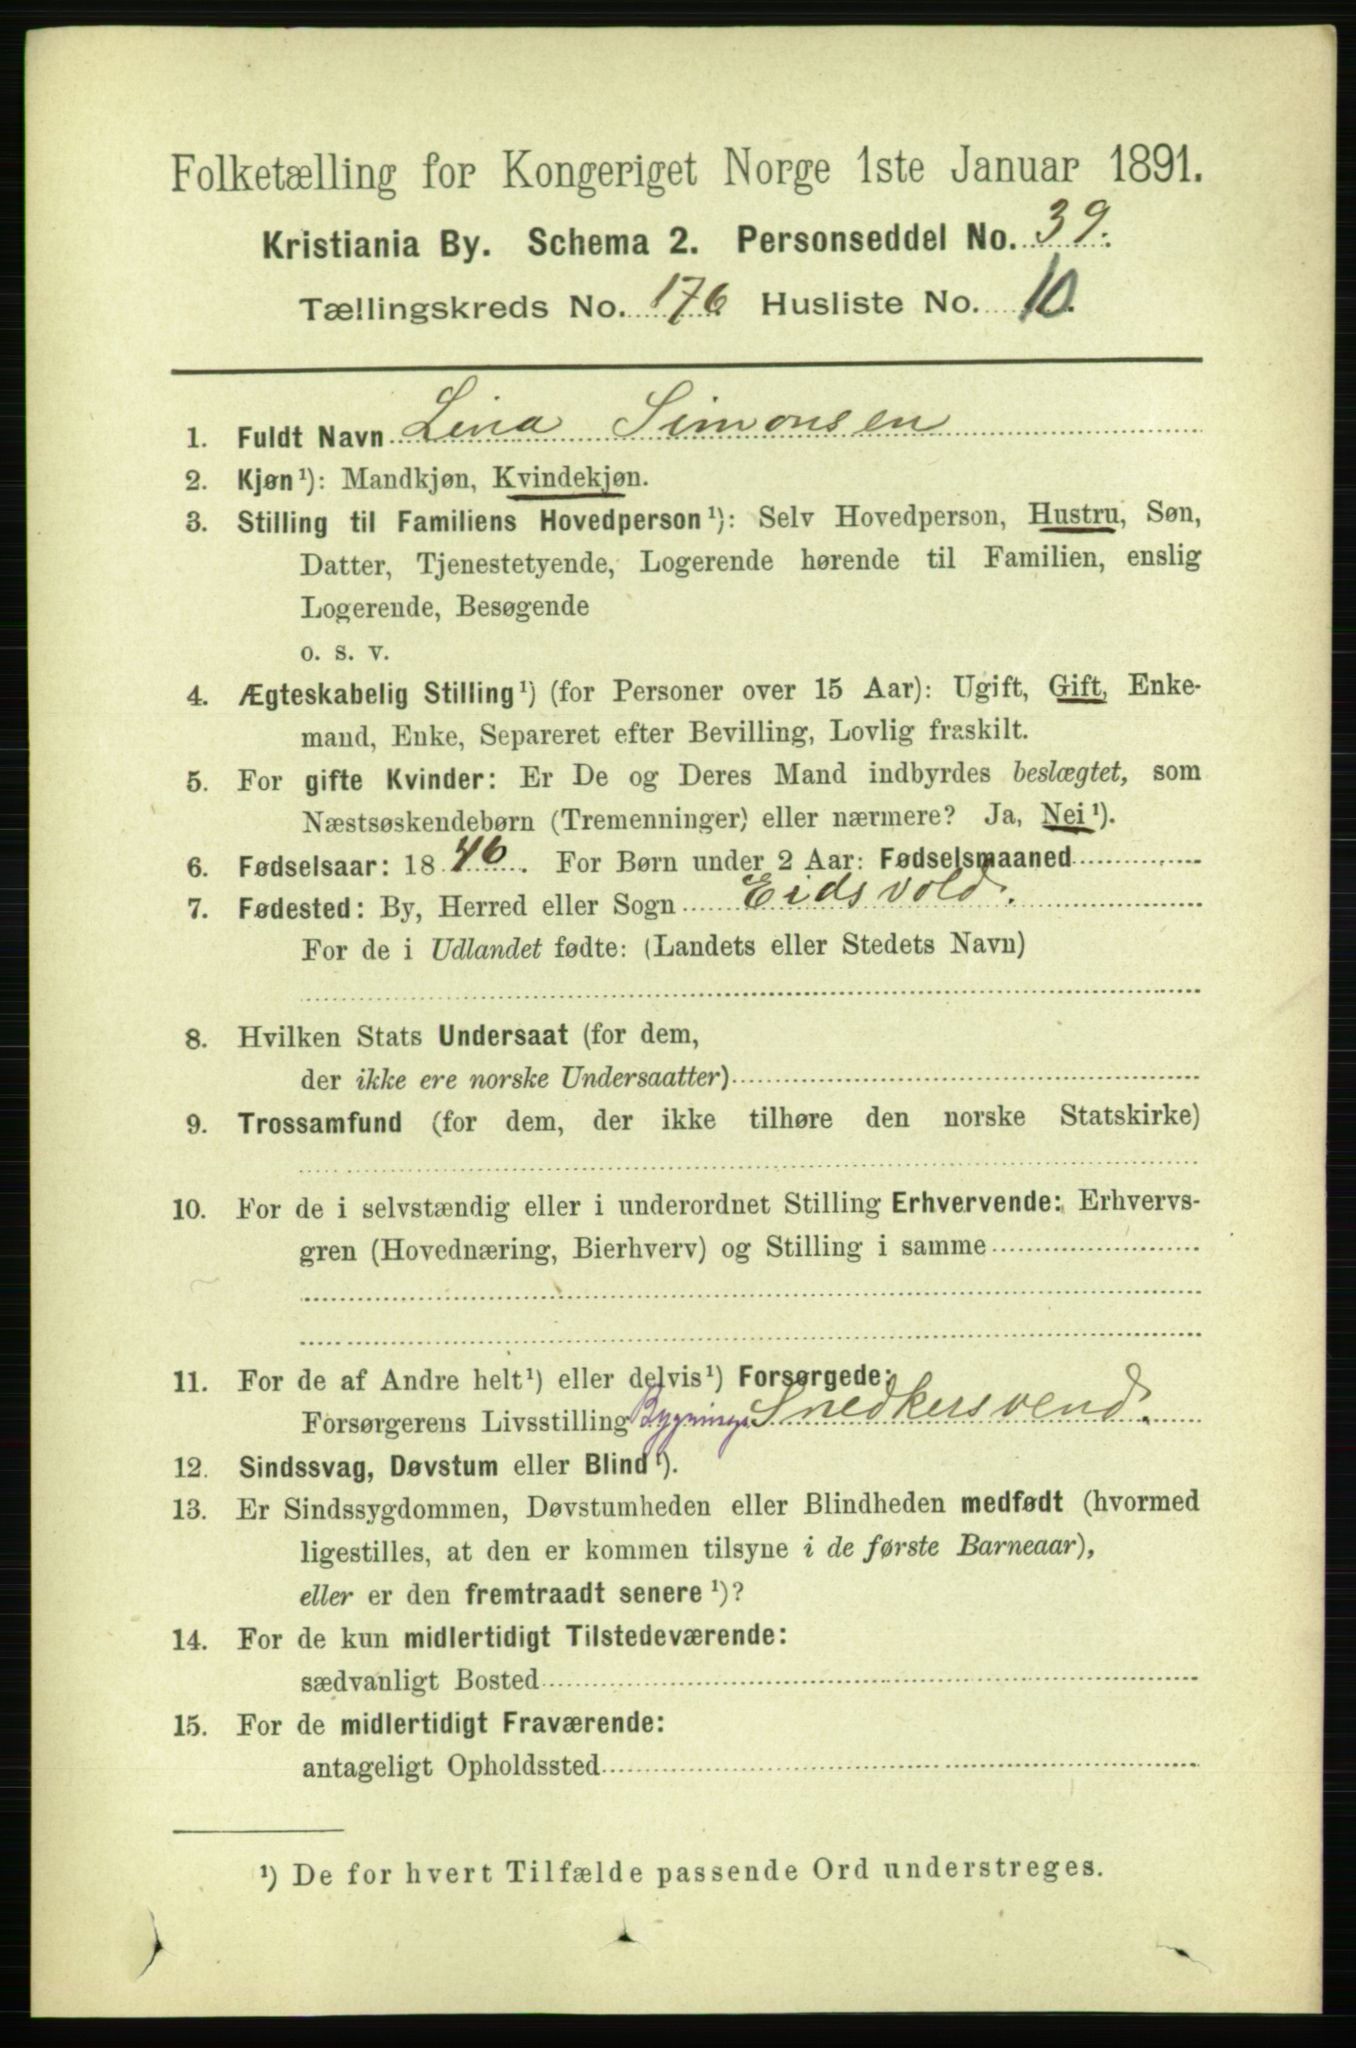 Folketælling for Kongeriget Norge 1ste Januar 1891.
Kristiania By. Schema 2. Personseddel No. 39.
Tællingskreds No. 176 Husliste No. 10.
1. Fuldt Navn Lina Simonsen
2. Kjøn¹): Mandkjøn, Kvindekjøn.
3. Stilling til Familiens Hovedperson¹): Selv Hovedperson, Hustru, Søn,
Datter, Tjenestetyende, Logerende hørende til Familien, enslig
Logerende, Besøgende
o. s. v.
4. Ægteskabelig Stilling¹) (for Personer over 15 Aar): Ugift, Gift, Enke-
mand, Enke, Separeret efter Bevilling, Lovlig fraskilt.
5. For gifte Kvinder: Er De og Deres Mand indbyrdes beslægtet, som
Næstsøskendebørn (Tremenninger) eller nærmere? Ja, Nei¹).
6. Fødselsaar: 1846. For Børn under 2 Aar: Fødselsmaaned
7. Fødested: By, Herred eller Sogn Eidsvold.
For de i Udlandet fødte: (Landets eller Stedets Navn)
8. Hvilken Stats Undersaat (for dem,
der ikke ere norske Undersaatter)
9. Trossamfund (for dem, der ikke tilhøre den norske Statskirke)
10. For de i selvstændig eller i underordnet Stilling Erhvervende: Erhvervs-
gren (Hovednæring, Bierhverv) og Stilling i samme
11. For de af Andre helt¹) eller delvis¹) Forsørgede:
Forsørgerens Livsstilling Bygnings Snedkersvend.
12. Sindssvag, Døvstum eller Blind¹).
13. Er Sindssygdommen, Døvstumheden eller Blindheden medfødt (hvormed
ligestilles, at den er kommen tilsyne i de første Barneaar),
eller er den fremtraadt senere¹)?
14. For de kun midlertidigt Tilstedeværende:
sædvanligt Bosted
15. For de midlertidigt Fraværende:
antageligt Opholdssted
¹) De for hvert Tilfælde passende Ord understreges.